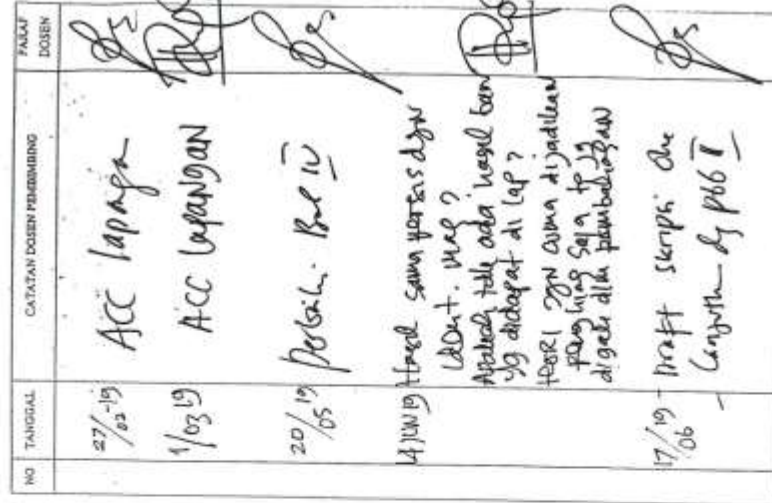 NO TANGGAL CATATAN DOSEN PEMBIMBING PARAF DOSEN
27/02-19 ACC lapangan
1/03 19 ACC lapangan
20/05 19 Perbaiki Bab IV
14 JUN 19 Hasil sama persis dgn
Ident. mas?
Apakah tdk ada hasil
yg didapat di lap?
teori jgn cuma dijadikan
saja tp jg
digali dlm pembahasan
17/06 19 - Draft skripsi Oke
- Lanjutkan dg pbb II